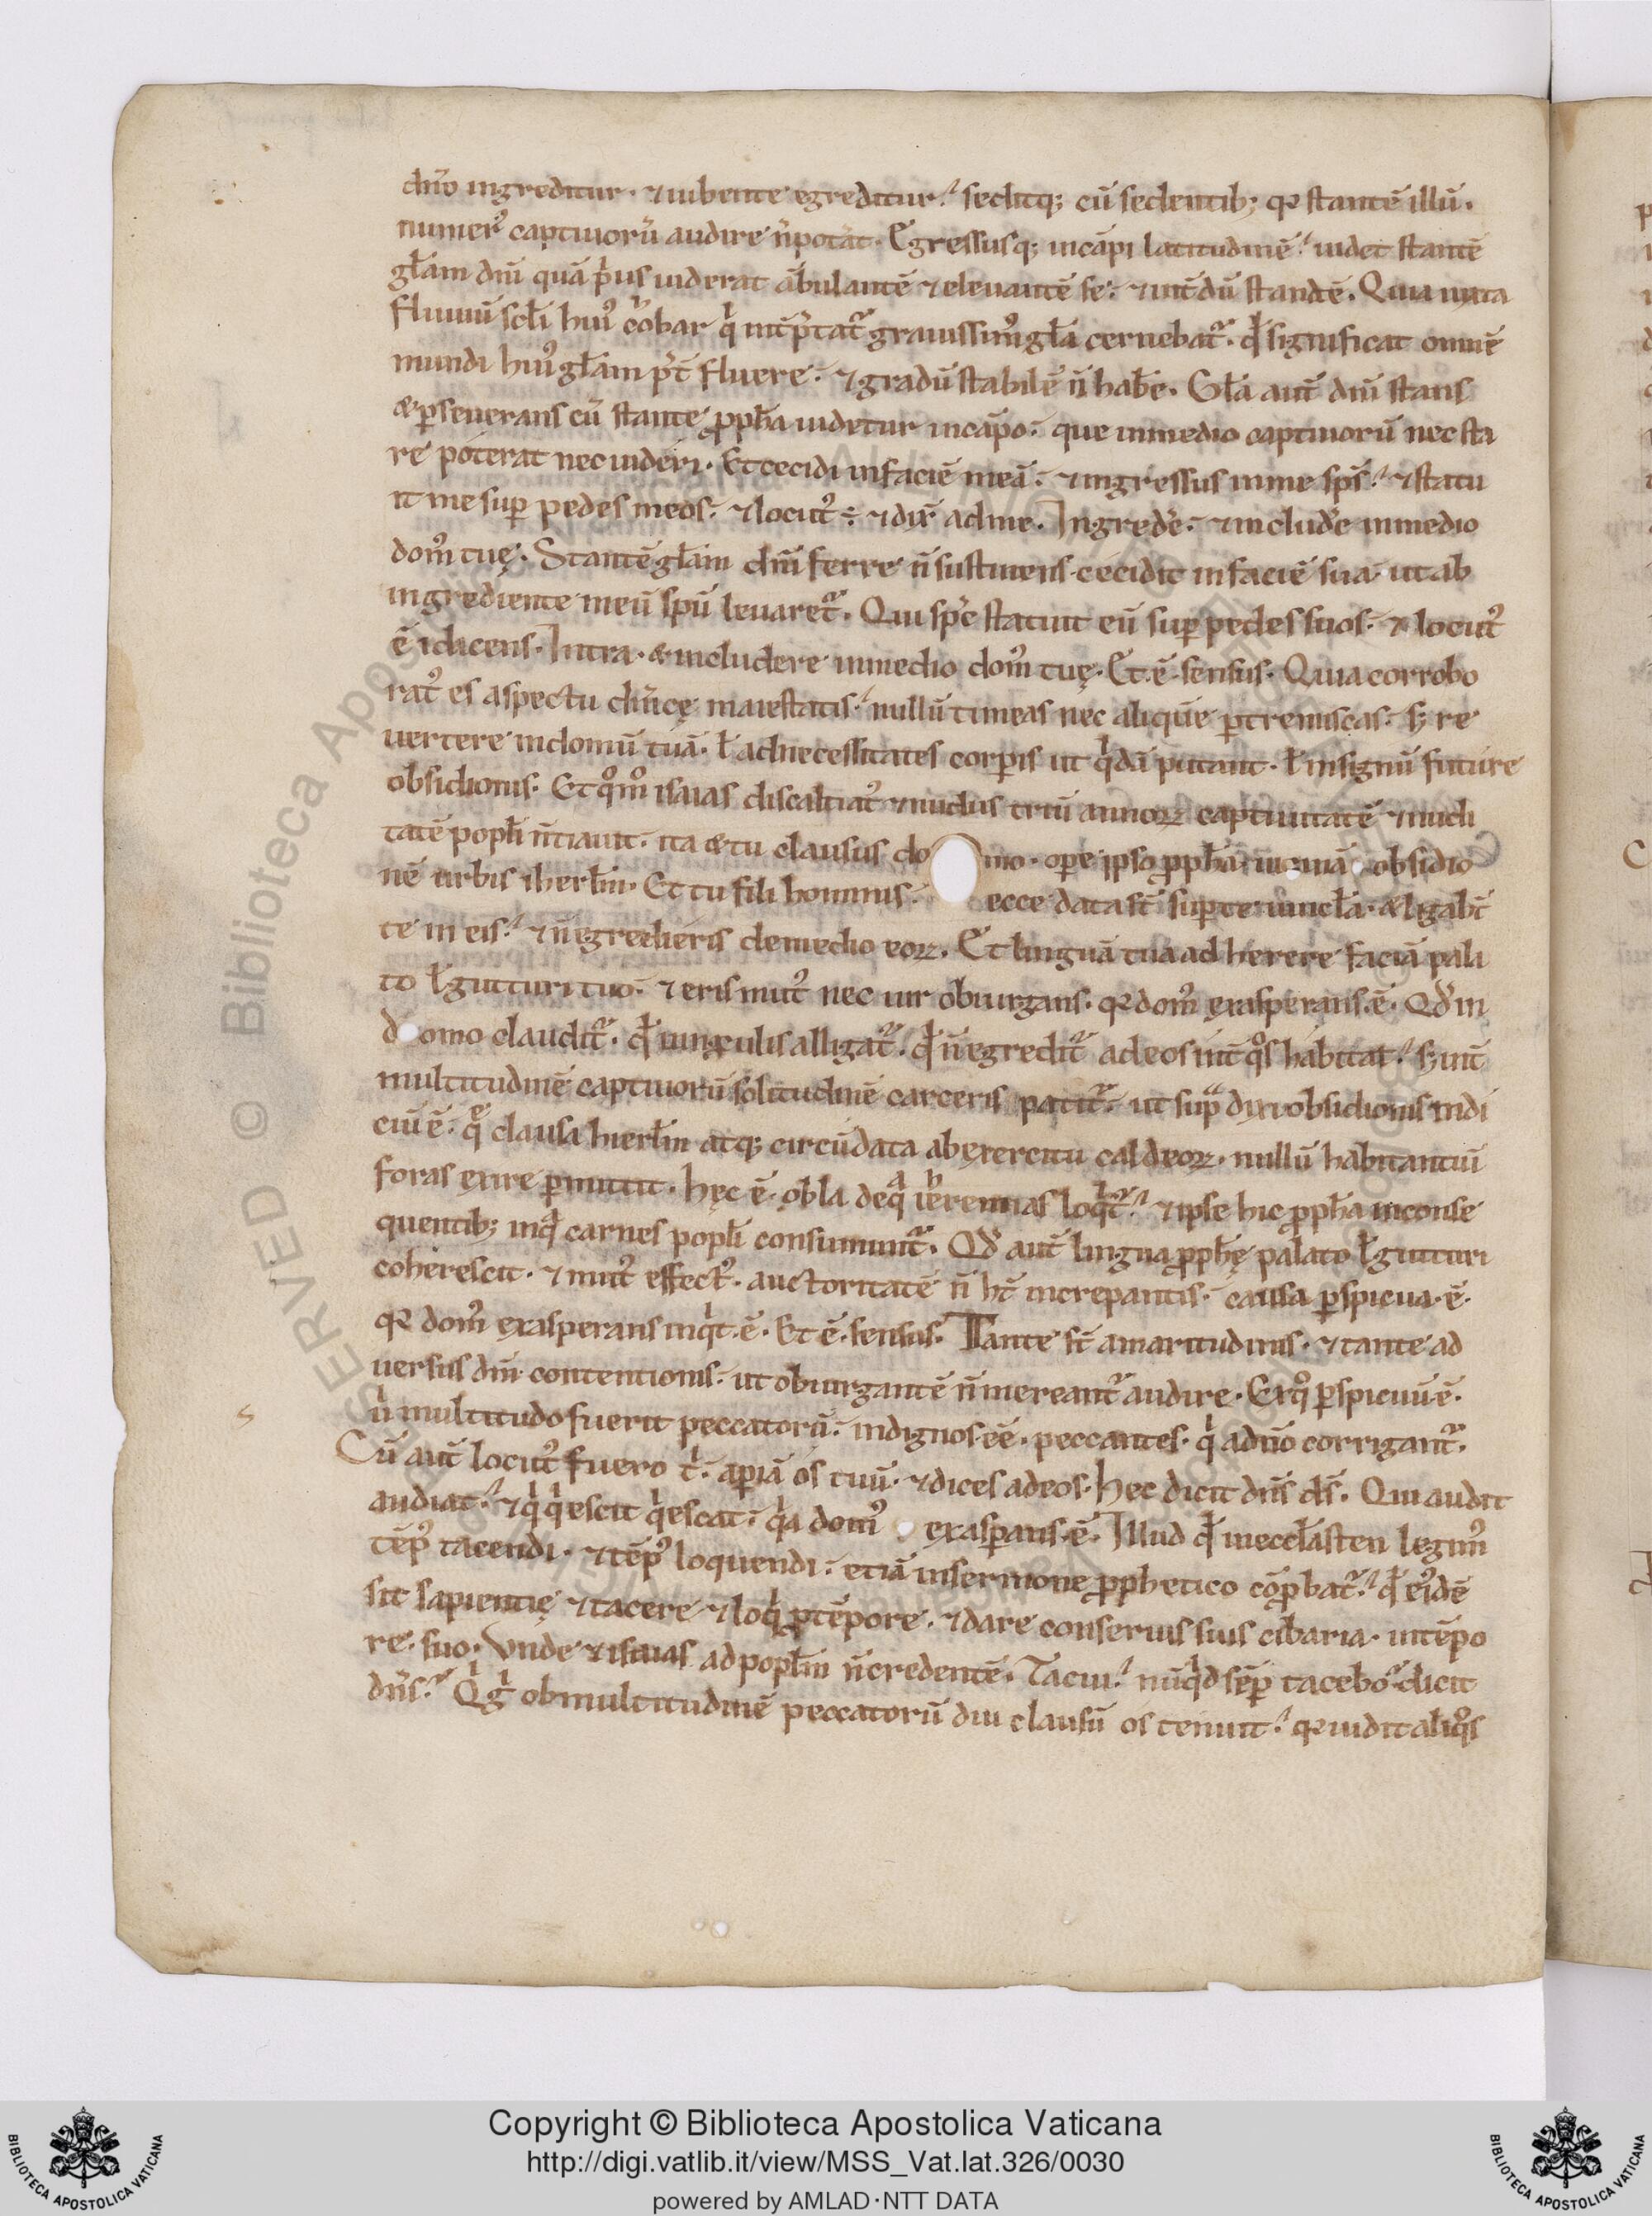 dn̄o ingreditur · ⁊ iubente egreditur. seditq; cū sedentib; q̄ stantē illū ·
numer᷒ captiuorū audire n̄ potat · Egressusq; in cāpi latitudinē. uidet stantē
gl̄am dn̄i quā p̄us uiderat ābulantē ⁊ eleuantē se. ⁊ int̄dū stantē. Quia iuxta
fluuiū scl̄i hui᷒ chobar q̄ int̄p̄tat̄ grauissimū gl̄a cernebat̄. qd̄ significat omnē
mundi hui᷒ gl̄am p̄t̄ fluere. ⁊ gradū stabilē n̄ hab̄e. Gl̄a aut̄ dn̄i stans
& p̄seuerans cū stante ꝓph̄a uidetur in cāpo. que in medio captiuorū nec sta
re poterat nec uideri. Et cecidi in faciē meā. ⁊ ingressus in me sp̄s. ⁊ statu
it me sup̄ pedes meos. ⁊ locut᷒ ÷ ⁊ dix̄ ad me. Ingred̄e. ⁊ includ̄e in medio
dom᷒ tuę. Stantē gl̄am dn̄i ferre n̄ sustinens · cecidit in faciē sua · ut ab
ingrediente in eū sp̄u leuaret̄. Qui sp̄c statuit eū sup̄ pedes suos. ⁊ locut᷒
ē ⁊ dicens. Intra · & includere in medio dom᷒ tuę. Et · ē · sensus. Quia corrobo
rat᷒ es aspectu dn̄icę maiestatis. nullū timeas nec aliquē p̄tremiscas. sȝ re
uertere in domū tuā · ł ad necessitates corp̄is ut q̄dā putant · ł in signū future
obsidionis. Et qōm̊ isaias discaltiat᷒ ⁊ nudus triū annoꝝ captiuitatē ⁊ nudi
tatē popl̄i n̄tiauit. ita & tu clausus do mo · op̄e ipso ꝓph̄a obsidio
nē urbis iherl̄m. Et tu fili hominis. ecce data st̄ sup̄ te uincl̄a. & ligabt̄
te in eis. ⁊ n̄ egredieris de medio eoꝝ. Et linguā tua ad herere faciā pala
to ł gutturi tuo. ⁊ eris mut᷒ nec uir obiurgans. q̄ dom᷒ exasperans · ē. Qd̄ in
domo claudit̄. qd̄ uinculis alligat̄. qd̄ n̄ egredit̄ ad eos int̄ qos habitat. sȝ int̄
multitudinē captiuorū solitudinē carceris patit̄. ut sup̄ dixi obsidionis indi
ciū ē. q̄ clausa hierl̄m atq; circūdata ab exercitu caldeoꝝ. nullū habitantiū
foras exire p̄mittit. hęc ē · olla de q̄ ieremias loqt̄. ⁊ ipse hic ꝓph̄a in conse
quentib; in q̄ carnes popl̄i consumunt̄. Qd̄ aut̄ lingua ꝓph̄ę palato ł gutturi
coherescit. ⁊ mut᷒ effect᷒. auctoritatē n̄ ht̄ increpantis. causa p̄spicua · ē ·
q̄ dom᷒ exasperans inqt · ē. Et ē · sensus. Tante st̄ amaritudinis. ⁊ tante ad
uersus dm̄ contentionis. ut obiurgantē n̄ mereant̄ audire. Ex qo p̄spicuū ē.
u multitudo fuerit peccatorū. indignos · eē · peccantes. q̄ a dn̄o corrigant̄.
Cū aut̄ locut᷒ fuero t̄. ap̄iā os tuū. ⁊ dices ad eos. hec dicit dn̄s ds̄. Qui audit
audiat. ⁊ q̄ q̄escit q̄escat. q̄a dom᷒ exasp̄ans · ē. Illud qd̄ in eccl̄asten legim᷒
tēp᷒ tacendi · ⁊ tēp᷒ loquendi. etiā in sermone ꝓphetico cōꝓbat̄. qd̄ ei᷒dē
sit sapientię ⁊ tacere ⁊ loq̄ ꝓ tēpore. ⁊ dare conseruis suis cibaria. in tēpo
re · suo. Vnde ⁊ isaias ad popl̄m n̄ credentē. Tacui. nūq̄d sēp̄ tacebo dicit
dn̄s. Q g̊ ob multitudinē peccatorū diu clausū os tenuit. q̄ uidit aliqos